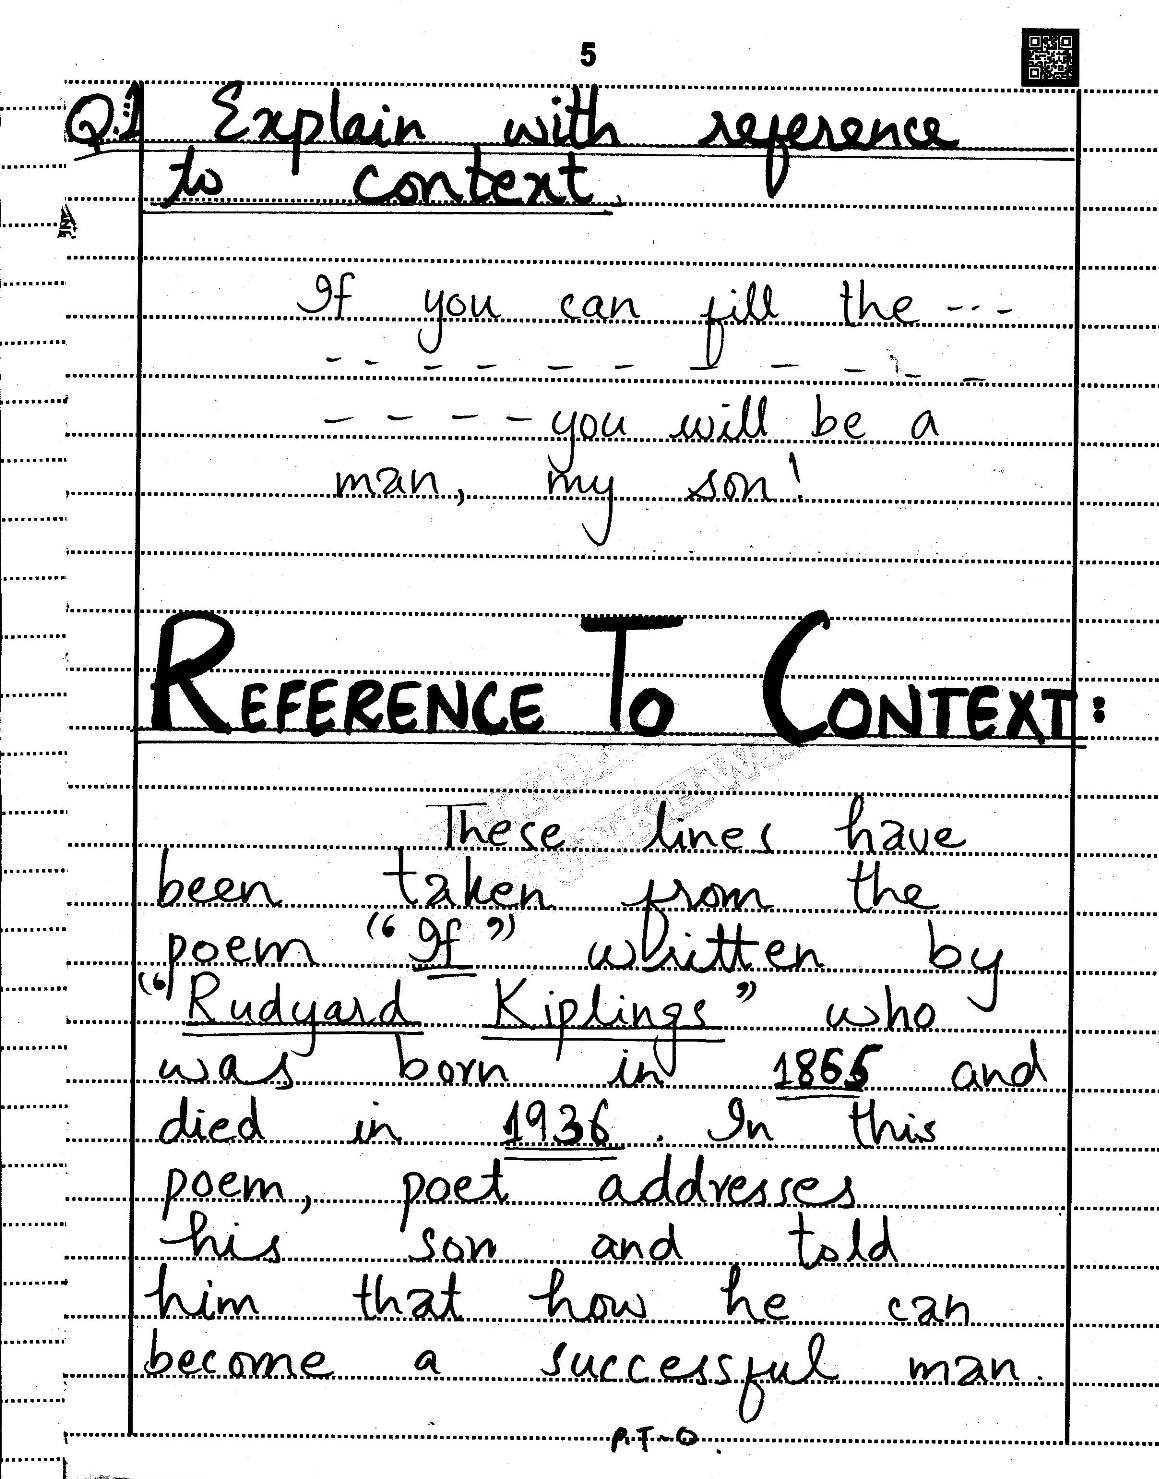 5
Q.1 Explain with reference
to context.
If you can fill the ---
-- - - - - - - - - -
- - - - you will be a
man, my son!
REFERENCE TO CONTEXT:
These lines have
been taken from the
poem "If" written by
"Rudyard Kiplings" who
was born in 1865 and
died in 1936. In this
poem, poet addresses
his son and told
him that how he can
become a successful man.
P.T-O.